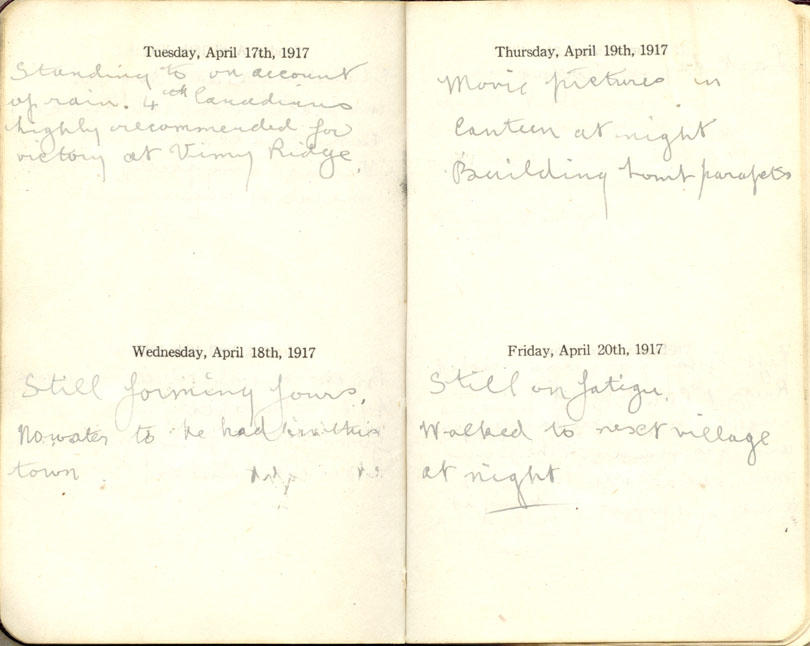 Tuesday, April 17th, 1917
Standing to on account
of rain. 4th Canadians
highly recommended for
victory at Vimy Ridge.
Wednesday, April 18th, 1917
Still forming fours.
No water to be had in this
town
Thursday, April 19th, 1917
Movie pictures in
Canteen at night
Building parapets
Friday, April 20th, 1917
Still on fatigue.
Walked to next village
at night